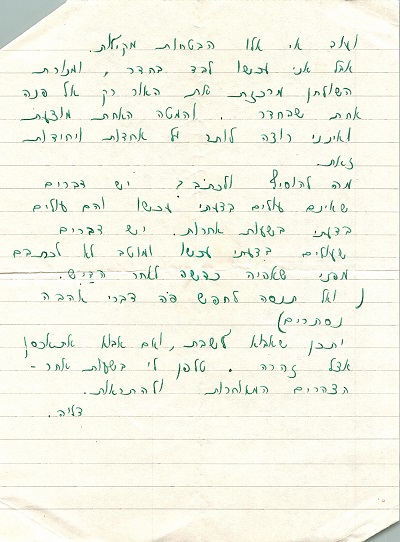 ועוד אי אלו הבטחות מקילות.
אבל אני עכשו לבד בחדר, ומנורת
השולחן מרכזת את האור רק אל פנה
אחת שבחדר. והמטה האחת מוצעת
ואינני רוצה לותר על אחדות ויחידות
זאת.
מה להוסיף ולכתוב? יש דברים
שאינם עולים בדעתי עכשו והם עולים
בדעתי בשעות אחרות. יש דברים
שעולים בדעתי עכשו ומוטב לא לכתבם
מפני שאהיה כבשה לאחר הדיש.
(ואל תנסה לחפש פה דברי אהבה
נסתרים)
יתכן שאבוא לשבת, ואם אבוא אתאכסן
אצל זהרה. טלפן לי בשעות אחר-
הצהרים המאוחרות ולהתראות.
דליה.